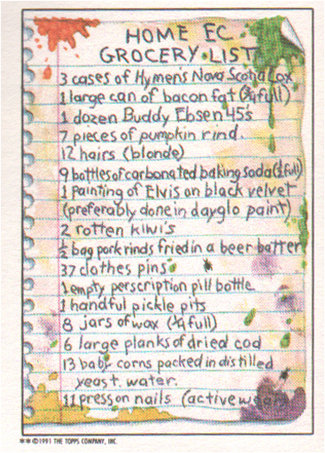 HOME EC
GROCERY LIST
3 cases of Hymen's Nova Scotia Lox
1 large can of bacon fat (¾ full)
1 dozen Buddy Ebsen 45's
7 pieces of pumpkin rind.
12 hairs (blonde)
9 bottles of carbonated baking soda (½ full)
1 painting of Elvis on black velvet
(preferably done in dayglo paint)
2 rotten kiwi's
½ bag pork rinds fried in a beer batter
37 clothes pins
1 empty perscription pill bottle
1 handful pickle pits
8 jars of wax (¼ full)
6 large planks of dried cod
13 baby corns packed in distilled
yeast water.
11 press on nails (active wear)
** ©1991 THE TOPPS COMPANY, INC.